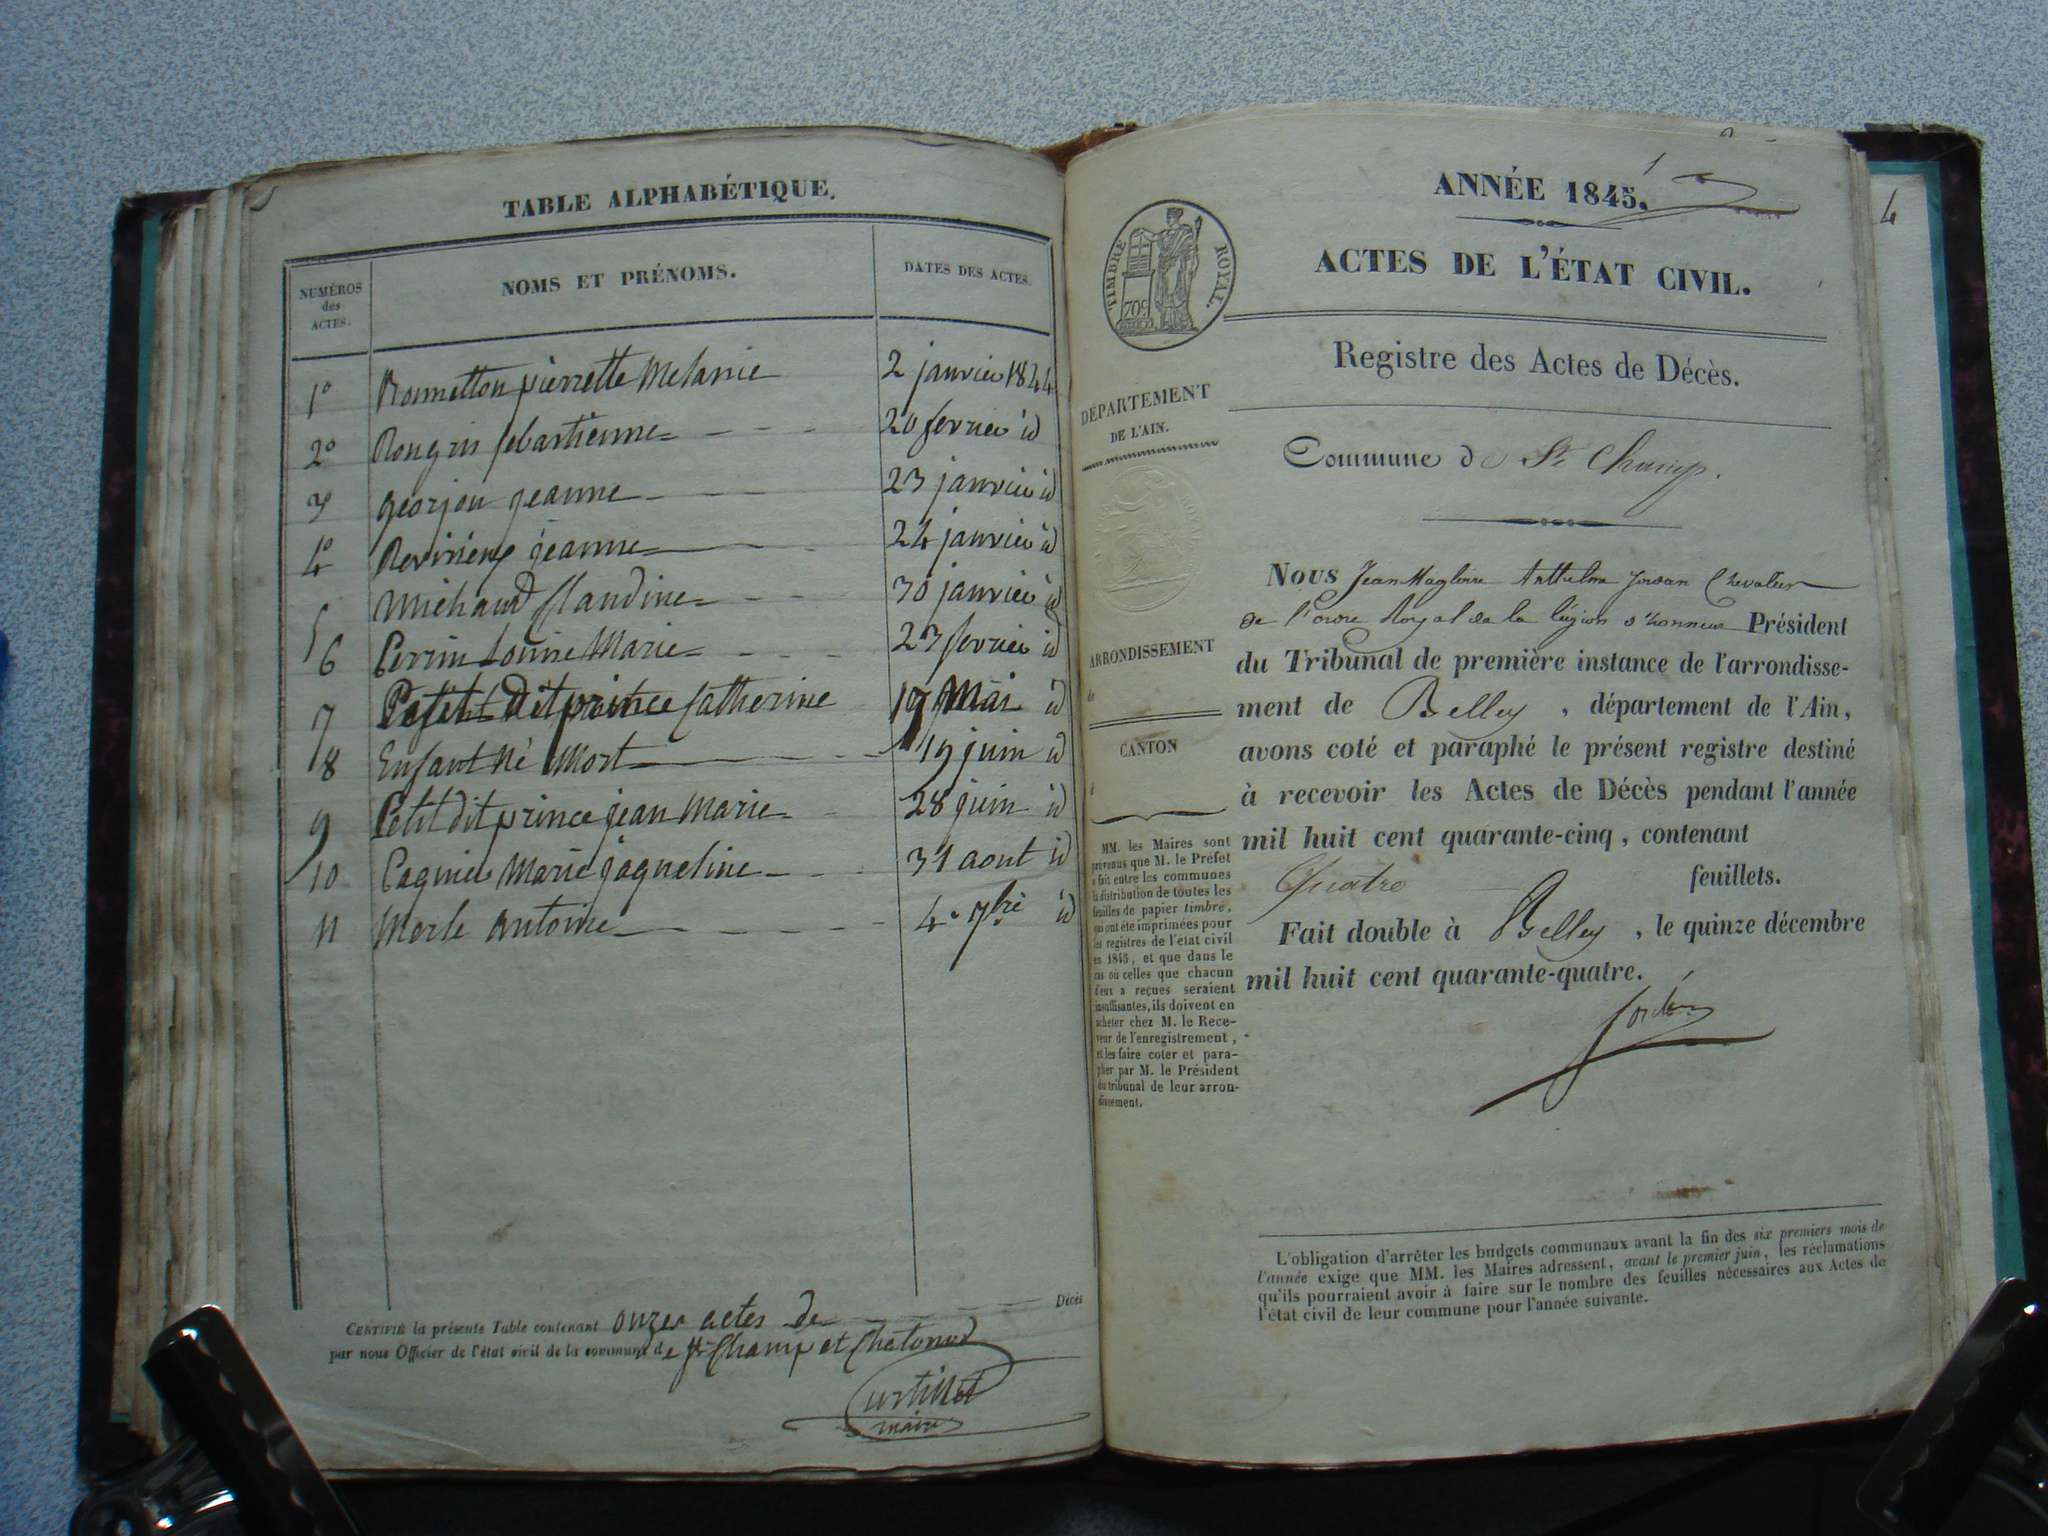 TABLE ALPHABÉTIQUE.
NUMÉROS des ACTES. NOMS ET PRÉNOMS. DATES DES ACTES.
1° pierrette Melanie 2 janvier 1844
2° sebastienne 20 fevrier id
3 georjon jeanne 23 janvier id
4° jeanne 24 janvier id
5 Michaud Claudine 30 janvier id
6 Perrin Louise Marie 23 fevrier id
7 Petit dit prince Catherine 17 Mai id
8 Enfant Né Mort 19 juin id
9 Petit dit prince jean Marie 28 juin id
10 Marie jaqueline 31 aout id
11 Merle antoine 4. 7bre id
CERTIFIÉ la présente Table contenant onze actes de Décès
par nous Officier de l'état civil de la commune de St Champ et Chatonod
Curtillet
maire
4
ANNÉE 1845.
ACTES DE L'ÉTAT CIVIL.
TIMBRE ROYAL.
70 c
Registre des Actes de Décès.
DÉPARTEMENT
DE L'AIN.
Commune de St Champ.
ARRONDISSEMENT
de
CANTON
d
MM. les Maires sont
prévenus que M. le Préfet
a fait entre les communes
la distribution de toutes les
feuilles de papier timbré,
qui ont été imprimées pour
les registres de l'état civil
en 1845, et que dans le
cas où celles que chacun
d'eux a reçues seraient
insuffisantes, ils doivent en
acheter chez M. le Rece-
veur de l'enregistrement,
et les faire coter et para-
pher par M. le Président
du tribunal de leur arron-
dissement.
Nous Jean Magloire Anthelme Jordan Chevalier
de l'ordre Royal de la légion d'honneur Président
du Tribunal de première instance de l'arrondisse-
ment de Belley, département de l'Ain,
avons coté et paraphé le présent registre destiné
à recevoir les Actes de Décès pendant l'année
mil huit cent quarante-cinq, contenant
Quatre feuillets.
Fait double à Belley, le quinze décembre
mil huit cent quarante-quatre.
Jordan
L'obligation d'arrêter les budgets communaux avant la fin des six premiers mois de
l'année exige que MM. les Maires adressent, avant le premier juin, les réclamations
qu'ils pourraient avoir à faire sur le nombre des feuilles nécessaires aux Actes de
l'état civil de leur commune pour l'année suivante.